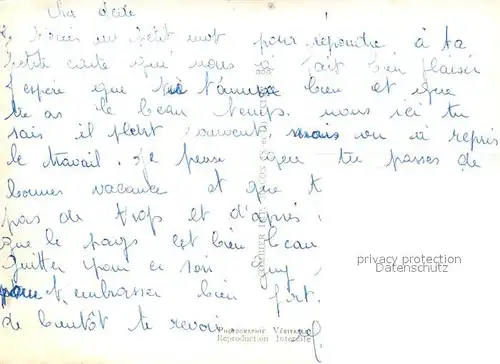 Ma
Je t'écris un petit mot pour répondre à ta
petite carte qui nous a fait bien plaisir
J'espère que tu t'amuse bien et que
tu as le beau temps. nous ici tu
sais il pleut souvent, mais on a repris
le travail. Je pense que tu passes de
bonnes vacance et que
pas de trop et d'après
que le pays est bien beau
privacy protection
Datenschutz
quitter pour ce soir
pour t'embrasser bien fort.
de bientôt te revoir
PHOTOGRAPHIE VÉRITABLE
Reproduction Interdite